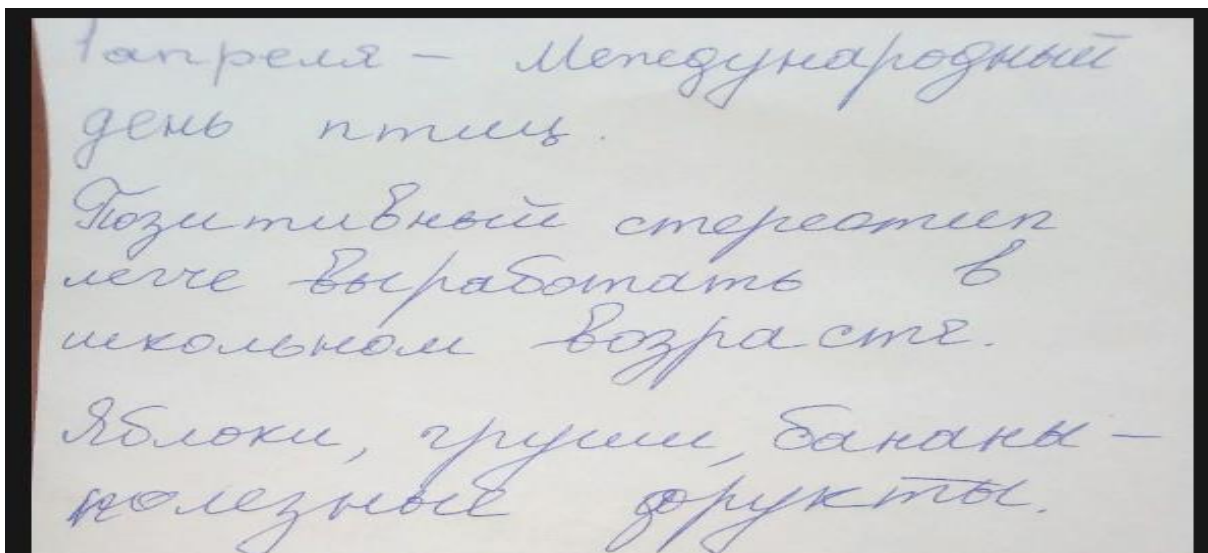 1 апреля – Международный
день птиц.
Позитивный стереотип
легче выработать в
школьном возрасте.
Яблоки, груши, бананы –
полезные фрукты.